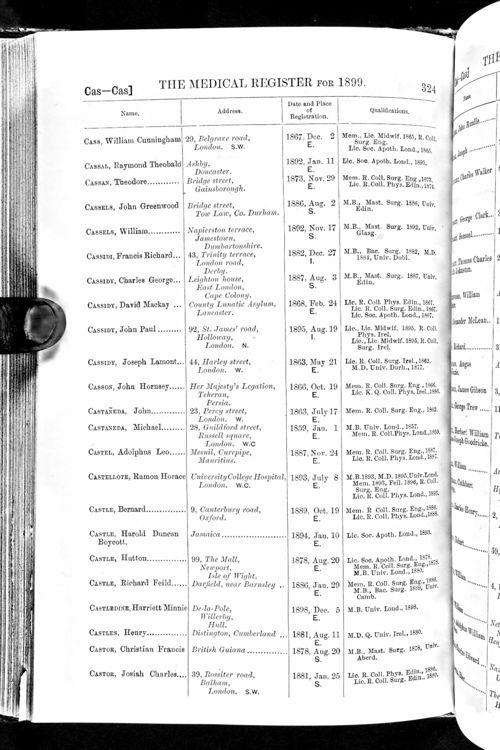 Cas—Cas] THE MEDICAL REGISTER FOR 1899. 324
Name. Address. Date and Place of Registration. Qualifications.
CASS, William Cunningham 29, Belgrave road, 1867, Dec. 2 Mem., Lic. Midwif. 1865, R. Coll.
London. S.W. E. Surg. Eng.
Lic. Soc. Apoth. Lond., 1865.
CASSAL, Raymond Theobald Ashby, 1892, Jan. 11 Lic. Soc. Apoth. Lond., 1891.
Doncaster. E.
CASSAN, Theodore............ Bridge street, 1873, Nov. 29 Mem. R. Coll. Surg. Eng., 1873.
Gainsborough. E. Lic. R. Coll. Phys. Edin., 1874.
CASSELS, John Greenwood Bridge street, 1886, Aug. 2 M.B., Mast. Surg. 1886, Univ.
Tow Law, Co. Durham. S. Edin.
CASSELS, William............ Napierston terrace, 1892, Nov. 17 M.B., Mast. Surg. 1892, Univ.
Jamestown, S. Glasg.
Dumbartonshire.
CASSIDI, Francis Richard... 43, Trinity terrace, 1882, Dec. 27 M.B., Bac. Surg. 1882, M.D.
London road, I. 1884, Univ. Dubl.
Derby.
CASSIDY, Charles George... Leighton house, 1887, Aug. 3 M.B., Mast. Surg. 1887, Univ.
East London, S. Edin.
Cape Colony.
CASSIDY, David Mackay ... County Lunatic Asylum, 1868, Feb. 24 Lic. R. Coll. Phys. Edin., 1867.
Lancaster. E. Lic. R. Coll. Surg. Edin., 1867.
Lic. Soc. Apoth. Lond., 1867.
CASSIDY, John Paul ......... 92, St. James' road, 1895, Aug. 19 Lic., Lic. Midwif. 1895, R. Coll.
Holloway, I. Phys. Irel.
London. N. Lic., Lic. Midwif. 1895, R. Coll.
Surg. Irel.
CASSIDY, Joseph Lamont... 44, Harley street, 1863, May 21 Lic. R. Coll. Surg. Irel., 1862.
London. W. E. M.D. Univ. Durh., 1877.
CASSON, John Hornsey...... Her Majesty's Legation, 1866, Oct. 19 Mem. R. Coll. Surg. Eng., 1866.
Teheran, E. Lic. K. Q. Coll. Phys. Irel., 1886.
Persia.
CASTAÑEDA, John............ 23, Percy street, 1863, July 17 Mem. R. Coll. Surg. Eng., 1863.
London. W. E.
CASTANEDA, Michael......... 28, Guildford street, 1859, Jan. 1 M.B. Univ. Lond., 1857.
Russell square, E. Mem. R. Coll. Phys. Lond., 1859.
London. W.C
CASTEL, Adolphus Leo...... Mesnil, Curepipe, 1887, Nov. 24 Mem. R. Coll. Surg. Eng., 1887.
Mauritius. E. Lic. R. Coll. Phys. Lond., 1887.
CASTELLOTE, Ramon Horace University College Hospital, 1893, July 8 M.B. 1893, M.D. 1895, Univ. Lond.
London. W.C. E. Mem. 1893, Fell. 1896, R. Coll.
Surg. Eng.
Lic. R. Coll. Phys. Lond., 1893.
CASTLE, Bernard............... 9, Canterbury road, 1889, Oct. 19 Mem. R Coll. Surg. Eng., 1888.
Oxford. E. Lic. R. Coll. Phys. Lond., 1888.
CASTLE, Harold Duncan Jamaica ..................... 1894, Jan. 10 Lic. Soc. Apoth. Lond., 1893.
Boycott. E.
CASTLE, Hutton............... 99, The Mall, 1878, Aug. 20 Lic. Soc. Apoth. Lond., 1878.
Newport, E. Mem. R. Coll. Surg. Eng., 1878.
Isle of Wight. M.B. Univ. Lond., 1880.
CASTLE, Richard Feild...... Darfield, near Barnsley .. 1886, Jan. 29 Mem. R. Coll. Surg. Eng., 1886.
E. M.B., Bac. Surg. 1889, Univ.
Camb.
CASTLEDINE, Harriett Minnie De-la-Pole, 1898, Dec. 5 M.B. Univ. Lond., 1898.
Willerby, E.
Hull.
CASTLES, Henry............... Distington, Cumberland ... 1881, Aug. 11 M.D. Q. Univ. Irel., 1880.
E.
CASTOR, Christian Francis British Guiana ............... 1878, Aug. 20 M.B., Mast. Surg. 1878, Univ.
S. Aberd.
CASTOR, Josiah Charles.... 39, Rossiter road, 1881, Jan. 25 Lic. R. Coll. Phys. Edin., 1880.
Balham, S. Lic. R. Coll. Surg. Edin., 1880.
London. S.W.